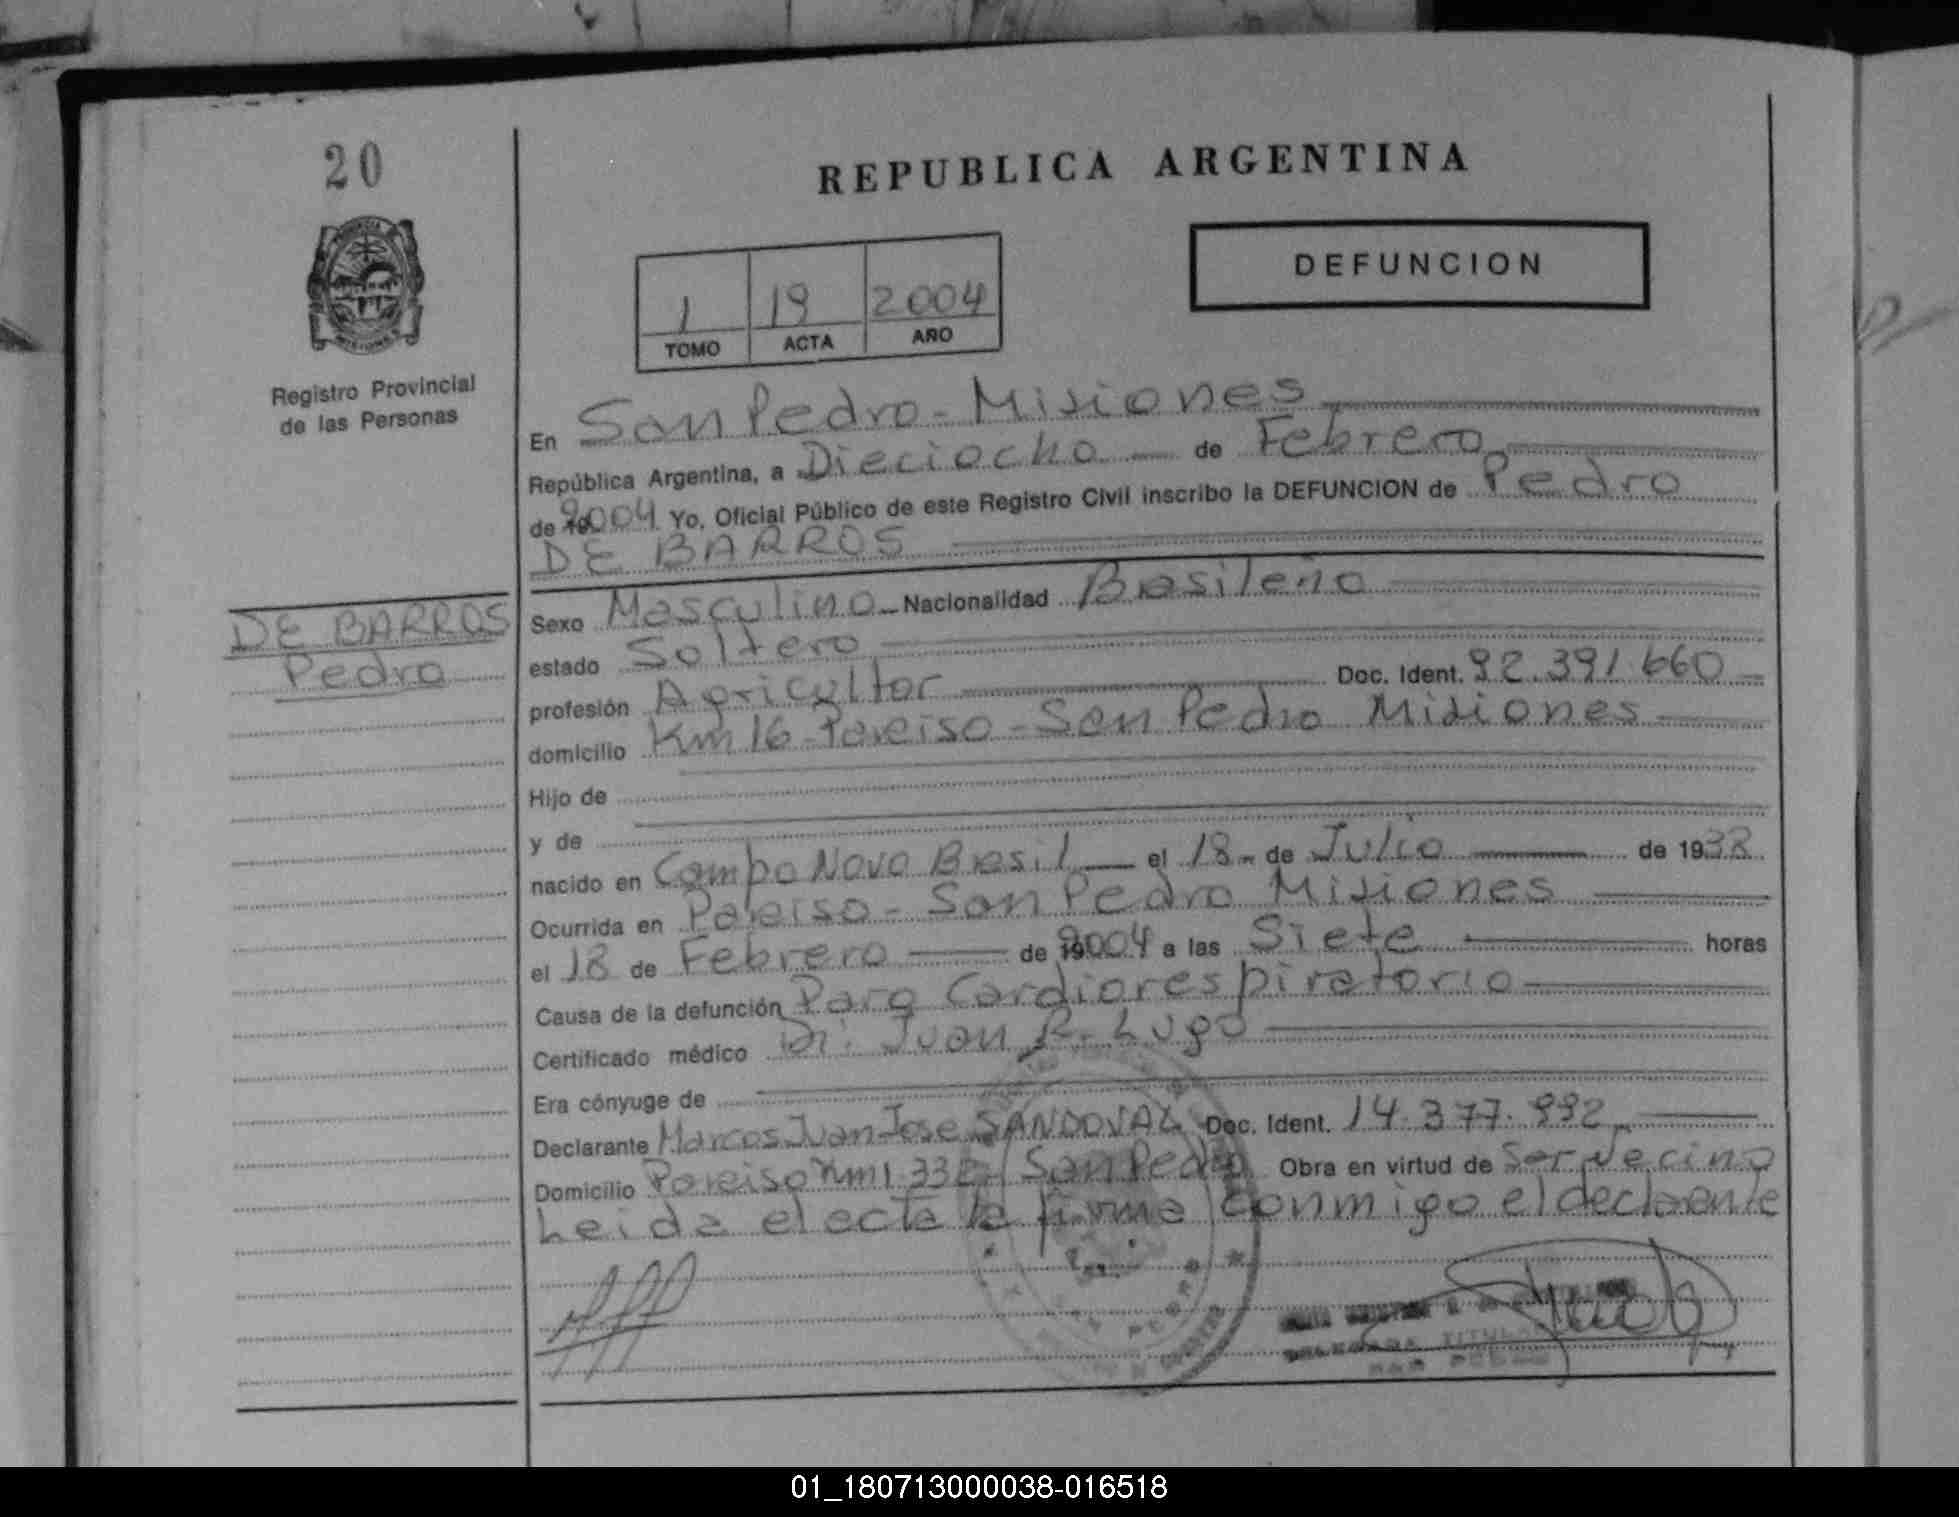 20
REPUBLICA ARGENTINA
DEFUNCION
1 19 2004
TOMO ACTA AÑO
Registro Provincial
de las Personas
En San Pedro - Misiones
República Argentina, a Dieciocho de Febrero
de 2004 Yo, Oficial Público de este Registro Civil inscribo la DEFUNCION de Pedro
DE BARROS
DE BARROS
Pedro
Sexo Masculino Nacionalidad Brasileño
estado Soltero
profesión Agricultor Doc. Ident. 92.391.660
domicilio Km 16 - Paraiso - San Pedro Misiones
Hijo de
y de
nacido en Campo Novo Brasil el 18 de Julio de 1938
Ocurrida en Paraiso - San Pedro Misiones
el 18 de Febrero de 2004 a las Siete horas
Causa de la defunción Paro Cardiorespiratorio
Certificado médico Dr. Juan R. Lugo
Era cónyuge de
Declarante Marcos Juan Jose SANDOVAL Doc. Ident. 14.377.992
Domicilio Paraiso San Pedro Obra en virtud de Ser Vecino
Leida el acta la firma conmigo el declarante
TITULAR
SAN PEDRO
01_180713000038-016518